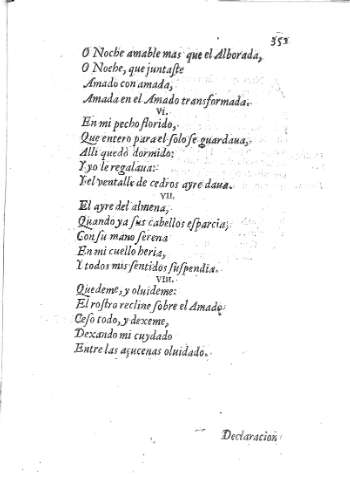 353
O Noche amable mas que el Alborada,
O Noche, que juntaſte
Amado con amada,
Amada en el Amado transformada.
VI.
En mi pecho florido,
Que entero para el ſolo ſe guardaua,
Alli quedò dormido:
Y yo le regalaua:
Y el ventalle de cedros ayre daua.
VII.
El ayre del almena,
Quando ya ſus cabellos eſparcia;
Con ſu mano ſerena
En mi cuello heria,
Y todos mis ſentidos ſuſpendia.
VIII.
Quedeme, y oluideme:
El roſtro recline ſobre el Amado:
Ceſo todo, y dexeme,
Dexando mi cuydado
Entre las açucenas oluidado.
Declaracion